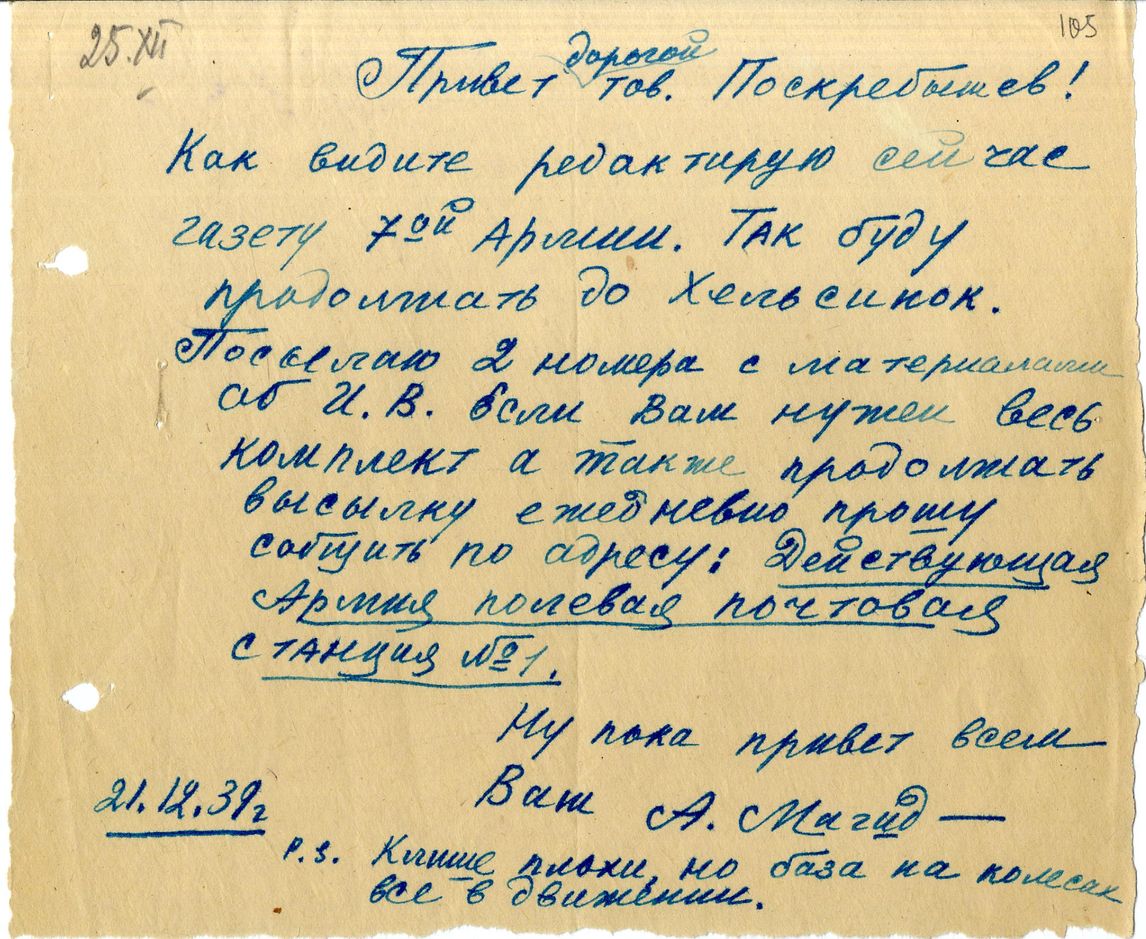 25.XII
105
Привет дорогой тов. Поскребышев!
Как видите редактирую сейчас
газету 7ой Армии. Так буду
продолжать до Хельсинок.
Посылаю 2 номера с материалами
об И. В. Если Вам нужен весь
комплект а также продолжать
высылку ежедневно прошу
собщить по адресу: Действующая
Армия полевая почтовая
станция №1.
Ну пока привет всем
Ваш А. Магид
21.12.39г
P.S. Клише плохи, но база на колесах
все в движении.